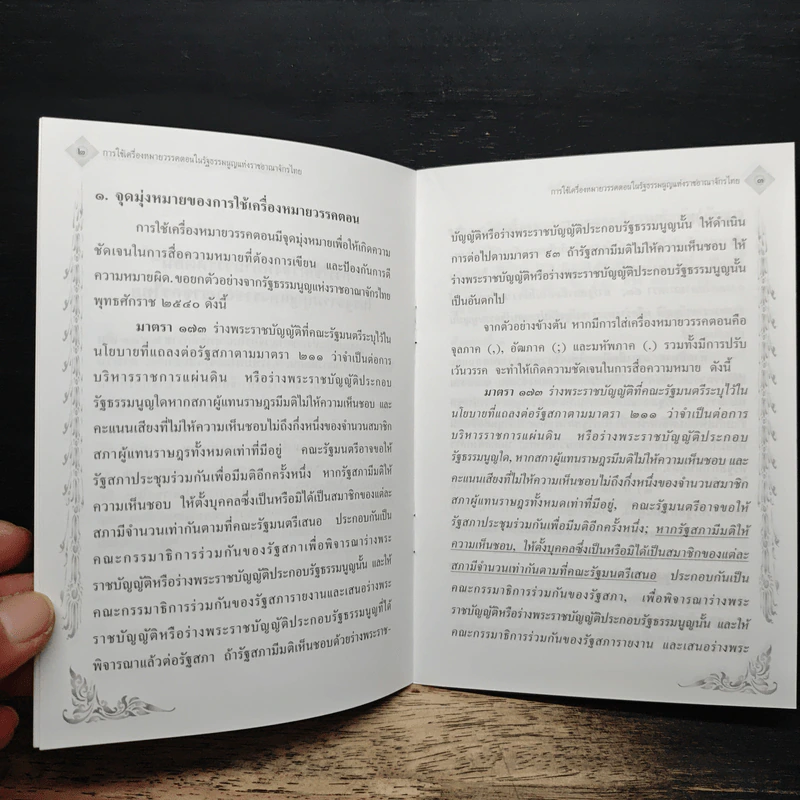 ๒
การใช้เครื่องหมายวรรคตอนในรัฐธรรมนูญแห่งราชอาณาจักรไทย
๑. จุดมุ่งหมายของการใช้เครื่องหมายวรรคตอน
การใช้เครื่องหมายวรรคตอนมีจุดมุ่งหมายเพื่อให้เกิดความ
ชัดเจนในการสื่อความหมายที่ต้องการเขียน และป้องกันการตี
ความหมายผิด. ขอยกตัวอย่างจากรัฐธรรมนูญแห่งราชอาณาจักรไทย
พุทธศักราช ๒๕๔๐ ดังนี้
มาตรา ๑๗๓ ร่างพระราชบัญญัติที่คณะรัฐมนตรีระบุไว้ใน
นโยบายที่แถลงต่อรัฐสภาตามมาตรา ๒๑๑ ว่าจำเป็นต่อการ
บริหารราชการแผ่นดิน หรือร่างพระราชบัญญัติประกอบ
รัฐธรรมนูญใดหากสภาผู้แทนราษฎรมีมติไม่ให้ความเห็นชอบ และ
คะแนนเสียงที่ไม่ให้ความเห็นชอบไม่ถึงกึ่งหนึ่งของจำนวนสมาชิก
สภาผู้แทนราษฎรทั้งหมดเท่าที่มีอยู่ คณะรัฐมนตรีอาจขอให้
รัฐสภาประชุมร่วมกันเพื่อมีมติอีกครั้งหนึ่ง หากรัฐสภามีมติให้
ความเห็นชอบ ให้ตั้งบุคคลซึ่งเป็นหรือมิได้เป็นสมาชิกของแต่ละ
สภามีจำนวนเท่ากันตามที่คณะรัฐมนตรีเสนอ ประกอบกันเป็น
คณะกรรมาธิการร่วมกันของรัฐสภาเพื่อพิจารณาร่างพระ
ราชบัญญัติหรือร่างพระราชบัญญัติประกอบรัฐธรรมนูญนั้น และให้
คณะกรรมาธิการร่วมกันของรัฐสภารายงานและเสนอร่างพระ
ราชบัญญัติหรือร่างพระราชบัญญัติประกอบรัฐธรรมนูญที่ได้
พิจารณาแล้วต่อรัฐสภา ถ้ารัฐสภามีมติเห็นชอบด้วยร่างพระราช-
การใช้เครื่องหมายวรรคตอนในรัฐธรรมนูญแห่งราชอาณาจักรไทย
๓
บัญญัติหรือร่างพระราชบัญญัติประกอบรัฐธรรมนูญนั้น ให้ดำเนิน
การต่อไปตามมาตรา ๙๓ ถ้ารัฐสภามีมติไม่ให้ความเห็นชอบ ให้
ร่างพระราชบัญญัติหรือร่างพระราชบัญญัติประกอบรัฐธรรมนูญนั้น
เป็นอันตกไป
จากตัวอย่างข้างต้น หากมีการใส่เครื่องหมายวรรคตอนคือ
จุลภาค (,), อัฒภาค (;) และมหัพภาค (.) รวมทั้งมีการปรับ
เว้นวรรค จะทำให้เกิดความชัดเจนในการสื่อความหมาย ดังนี้
มาตรา ๑๗๓ ร่างพระราชบัญญัติที่คณะรัฐมนตรีระบุไว้ใน
นโยบายที่แถลงต่อรัฐสภาตามมาตรา ๒๑๑ ว่าจำเป็นต่อการ
บริหารราชการแผ่นดิน หรือร่างพระราชบัญญัติประกอบ
รัฐธรรมนูญใด, หากสภาผู้แทนราษฎรมีมติไม่ให้ความเห็นชอบ และ
คะแนนเสียงที่ไม่ให้ความเห็นชอบไม่ถึงกึ่งหนึ่งของจำนวนสมาชิก
สภาผู้แทนราษฎรทั้งหมดเท่าที่มีอยู่, คณะรัฐมนตรีอาจขอให้
รัฐสภาประชุมร่วมกันเพื่อมีมติอีกครั้งหนึ่ง; หากรัฐสภามีมติให้
ความเห็นชอบ, ให้ตั้งบุคคลซึ่งเป็นหรือมิได้เป็นสมาชิกของแต่ละ
สภามีจำนวนเท่ากันตามที่คณะรัฐมนตรีเสนอ ประกอบกันเป็น
คณะกรรมาธิการร่วมกันของรัฐสภา, เพื่อพิจารณาร่างพระ
ราชบัญญัติหรือร่างพระราชบัญญัติประกอบรัฐธรรมนูญนั้น และให้
คณะกรรมาธิการร่วมกันของรัฐสภารายงาน และเสนอร่างพระ